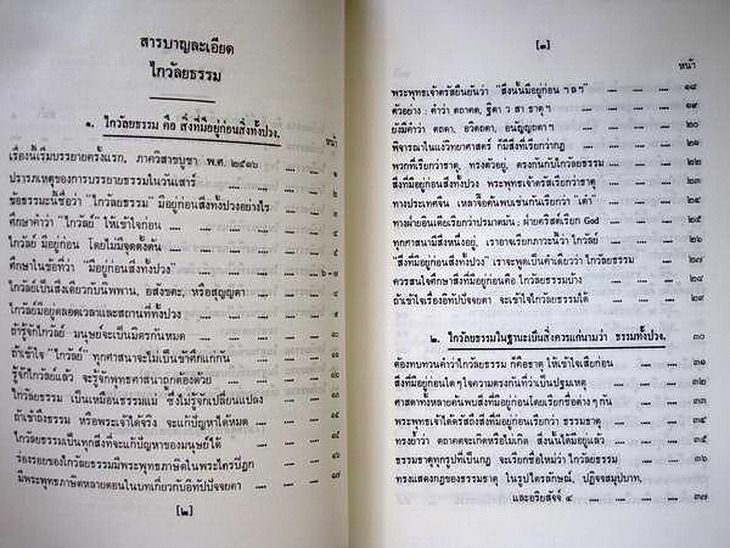 สารบาญละเอียด
ไกวัลยธรรม
๑. ไกวัลยธรรม คือ สิ่งที่มีอยู่ก่อนสิ่งทั้งปวง. หน้า
เรื่องนี้เริ่มบรรยายครั้งแรก, ภาควิสาขบูชา พ.ศ. ๒๕๑๖ .... .... ๑
ปรารภเหตุของการบรรยายธรรมในวันเสาร์ .... .... ....
ข้อธรรมนี้ชื่อว่า "ไกวัลยธรรม" มีอยู่ก่อนสิ่งทั้งปวงอย่างไร ....
ศึกษาคำว่า "ไกวัลย์" ให้เข้าใจก่อน .... .... ....
ไกวัลย์ มีอยู่ก่อน โดยไม่มีจุดตั้งต้น .... .... ....
ศึกษาในข้อที่ว่า "มีอยู่ก่อนสิ่งทั้งปวง" .... .... .... ๖-๗
ไกวัลย์เป็นสิ่งเดียวกับนิพพาน, อสังขตะ, หรือสุญญตา ....
ไกวัลย์มีอยู่ตลอดเวลาและสถานที่ทั้งปวง .... ....
ถ้ารู้จักไกวัลย์ มนุษย์จะเป็นมิตรกันหมด .... ....
ถ้าเข้าใจ "ไกวัลย์" ทุกศาสนาจะไม่เป็นข้าศึกแก่กัน ....
รู้จักไกวัลย์แล้ว จะรู้จักพุทธศาสนาถูกต้องด้วย .... ....
ไกวัลยธรรม เป็นเหมือนธรรมแม่ ซึ่งไม่รู้จักเปลี่ยนแปลง
ถ้าเข้าถึงธรรม หรือพระเจ้าได้จริง จะแก้ปัญหาได้หมด ....
ไกวัลยธรรมเป็นทุกสิ่งที่จะแก้ปัญหาของมนุษย์ได้ ....
ร่องรอยของไกวัลยธรรมมีพระพุทธภาษิตในพระไตรปิฎก
มีพระพุทธภาษิตหลายตอนในบทเกี่ยวกับอิทัปปัจจยตา .... ๑๗
[๒]
[๓]
หน้า
พระพุทธเจ้าตรัสยืนยันว่า "สิ่งนั้นมีอยู่ก่อน ฯลฯ" .... .... ๑๘
ตัวอย่าง : คำว่า ตถาคต, ฐิตา ว สา ธาตุฯ .... .... ๑๙
ยังมีคำว่า ตถตา, อวิตถตา, อนัญญถตา ฯ .... .... ๒๐
พิจารณาในแง่วิทยาศาสตร์ ก็มีสิ่งที่เรียกว่ากฎ .... .... ๒๑
พวกที่เรียกว่าธาตุ, ทรงตัวอยู่, ตรงกันกับไกวัลยธรรม .... .... ๒๒
สิ่งที่มีอยู่ก่อนสิ่งทั้งปวง พระพุทธเจ้าตรัสเรียกว่าธาตุ .... .... ๒๓
ทางประเทศจีน เหลาจื๊อค้นพบเช่นกันเรียกว่า "เต๋า" .... .... ๒๔
ทางฝ่ายอินเดียเรียกว่าปรมาตมัน : ฝ่ายคริสต์เรียก God .... ๒๕
ทุกศาสนามีสิ่งหนึ่งอยู่, เราอาจเรียกภาวะนี้ว่า ไกวัลย์ .... .... ๒๖
"สิ่งที่มีอยู่ก่อนสิ่งทั้งปวง" เราจะพูดเป็นคำเดียวว่า ไกวัลยธรรม .... ๒๗
ควรสนใจศึกษาสิ่งที่มีอยู่ก่อนคือ ไกวัลยธรรมบ้าง .... .... ๒๘
ถ้าเข้าใจเรื่องอิทัปปัจจยตา จะเข้าใจไกวัลยธรรมได้ .... .... ๒๙
๒. ไกวัลยธรรมในฐานะเป็นสิ่งควรแก่นามว่า ธรรมทั้งปวง. ๓๐
ต้องทบทวนคำว่าไกวัลยธรรม ก็คือธาตุ ให้เข้าใจเสียก่อน .... ๓๑
สิ่งที่มีอยู่ก่อนใดๆใจความตรงกันที่ว่าเป็นปฐมเหตุ .... .... ๓๒
ศาสดาทั้งหลายค้นพบสิ่งที่มีอยู่ก่อนโดยเรียกชื่อต่างๆกัน .... ๓๓
พระพุทธเจ้าได้ตรัสถึงสิ่งที่มีอยู่ก่อนเรียกว่า ธรรมธาตุ .... ๓๔
ทรงย้ำว่า ตถาคตจะเกิดหรือไม่เกิด สิ่งนั้นได้มีอยู่แล้ว .... ๓๕
ธรรมธาตุทุกรูปที่เป็นกฎ จะเรียกชื่อใหม่ว่า ไกวัลยธรรม .... ๓๖
ทรงแสดงกฎของธรรมธาตุ ในรูปไตรลักษณ์, ปฏิจจสมุปบาท,
และอริยสัจจ์ ๔ .... .... .... .... ๓๗